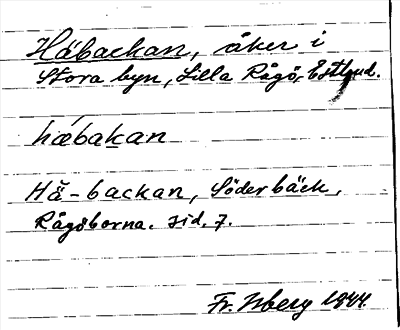 Håbackan, åker i
Stora byn, Lilla Rågö, Estland.
hæbakan
Hå-backan, Söderbäck,
Rågöborna. sid. 7.
Fr. Wberg 1944.